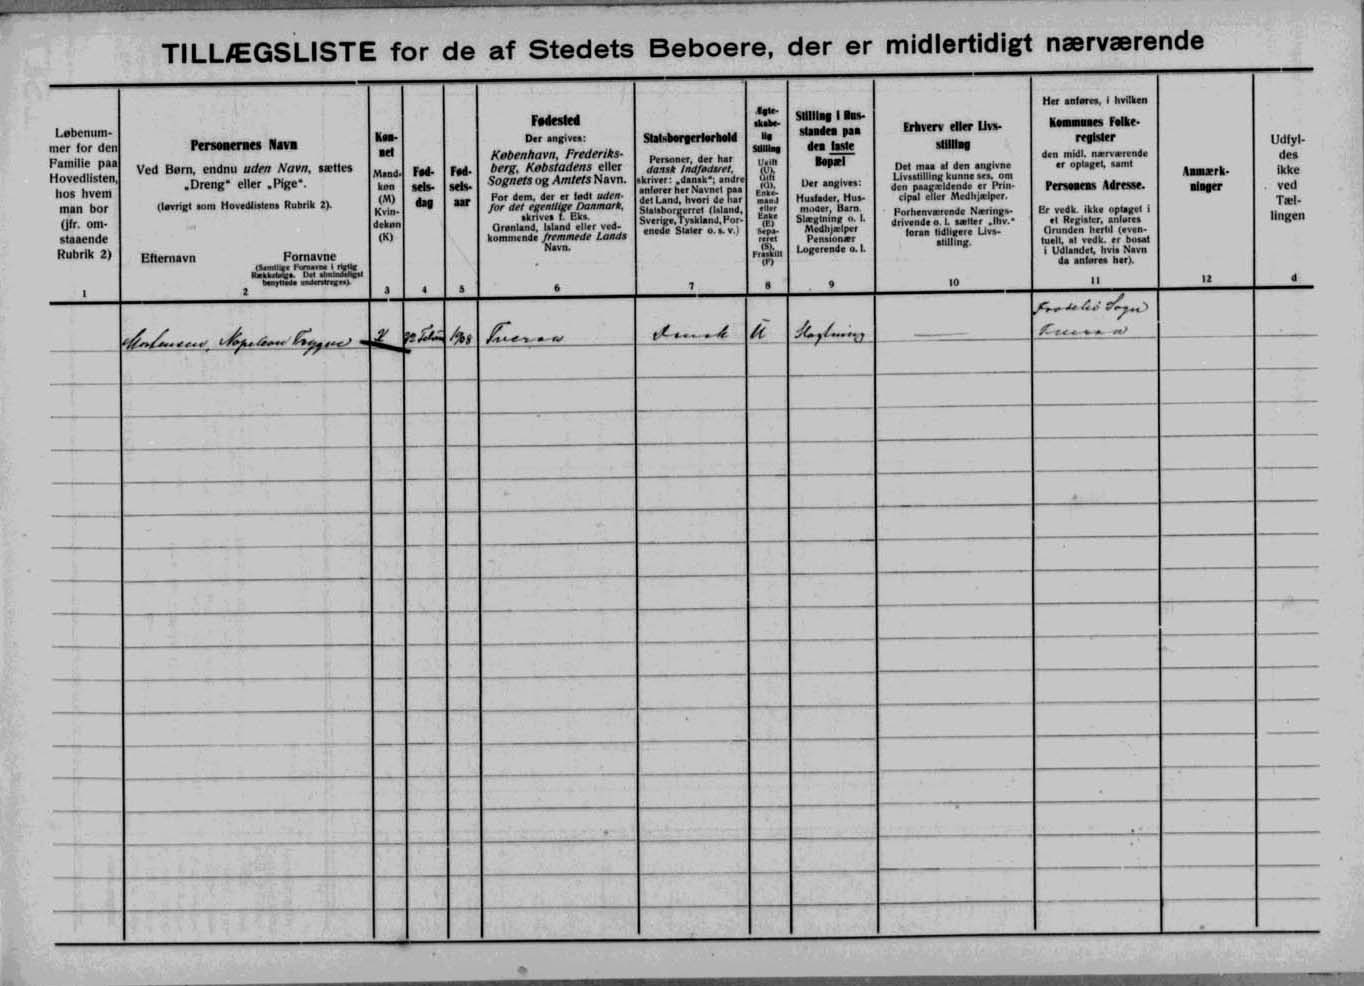 TILLÆGSLISTE for de af Stedets Beboere, der er midlertidigt nærværende
Løbenum-
mer for den
Familie paa
Hovedlisten,
hos hvem
man bor
(jfr. om-
staaende
Rubrik 2)
1
Personernes Navn
Ved Børn, endnu uden Navn, sættes
„Dreng“ eller „Pige“.
(Iøvrigt som Hovedlistens Rubrik 2).
Efternavn
Fornavne
(Samtlige Fornavne i rigtig
Rækkefølge. Det almindeligst
benyttede understreges).
2
Køn-
net
Mand-
køn
(M)
Kvin-
dekøn
(K)
3
Fød-
sels-
dag
4
Fød-
sels-
aar
5
Fødested
Der angives:
København, Frederiks-
berg, Købstadens eller
Sognets og Amtets Navn.
For dem, der er født uden-
for det egentlige Danmark,
skrives f. Eks.
Grønland, Island eller ved-
kommende fremmede Lands
Navn.
6
Statsborgerforhold
Personer, der har
dansk Indfødsret,
skriver: „dansk“; andre
anfører her Navnet paa
det Land, hvori de har
Statsborgerret (Island,
Sverige, Tyskland, For-
enede Stater o. s. v.)
7
Ægte-
skabe-
lig
Stilling
Ugift
(U),
Gift
(G),
Enke-
mand
eller
Enke
(E)
Sepa-
reret
(S),
Fraskilt
(F)
8
Stilling i Hus-
standen paa
den faste
Bopæl
Der angives:
Husfader, Hus-
moder, Barn,
Slægtning o. l.
Medhjælper
Pensionær
Logerende o. l.
9
Erhverv eller Livs-
stilling
Det maa af den angivne
Livsstilling kunne ses, om
den paagældende er Prin-
cipal eller Medhjælper.
Forhenværende Nærings-
drivende o. l. sætter „fhv.“
foran tidligere Livs-
stilling.
10
Her anføres, i hvilken
Kommunes Folke-
register
den midl. nærværende
er optaget, samt
Personens Adresse.
Er vedk. ikke optaget i
et Register, anføres
Grunden hertil (even-
tuelt, at vedk. er bosat
i Udlandet, hvis Navn
da anføres her).
11
Anmærk-
ninger
12
Udfyl-
des
ikke
ved
Tæl-
lingen
d
Mortensen, Napoleon Trygve
1908 Tveraa Dansk U Slægtning
Sogn
Tveraa